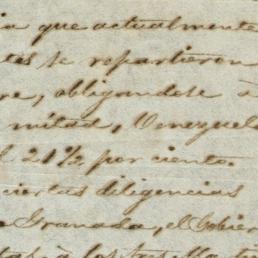 ia que actualmente
tes se repartieron
re, obligandose à
mitad, Venezuela
l 21½ por ciento.
ciertas diligencias
a Granada, el Gobier